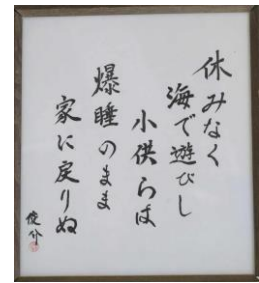 休みなく
海で遊びし
小供らは
爆睡のまま
家に戻りぬ
俊介